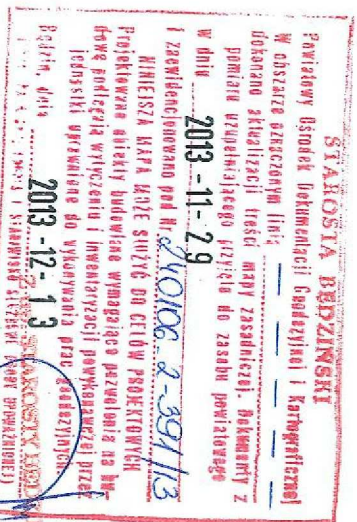 STAROSTA BĘDZIŃSKI
Powiatowy Ośrodek Dokumentacji Geodezyjnej i Kartograficznej
W obszarze oznaczonym linią
dokonano aktualizacji treści mapy zasadniczej. Dokumenty z
pomiaru uzupełniającego przyjęto do zasobu powiatowego
w dniu 2013 -11- 29
i zaewidencjonowano pod Nr 240106_2-391/13
NINIEJSZA MAPA MOŻE SŁUŻYĆ DO CELÓW PROJEKTOWYCH
Projektowane obiekty budowlane wymagające pozwolenia na bu-
dowę podlegają wytyczeniu i inwentaryzacji powykonawczej przez
jednostki uprawnione do wykonywania prac geodezyjnych
Będzin, dnia 2013 -12- 13 Z up. STAROSTY